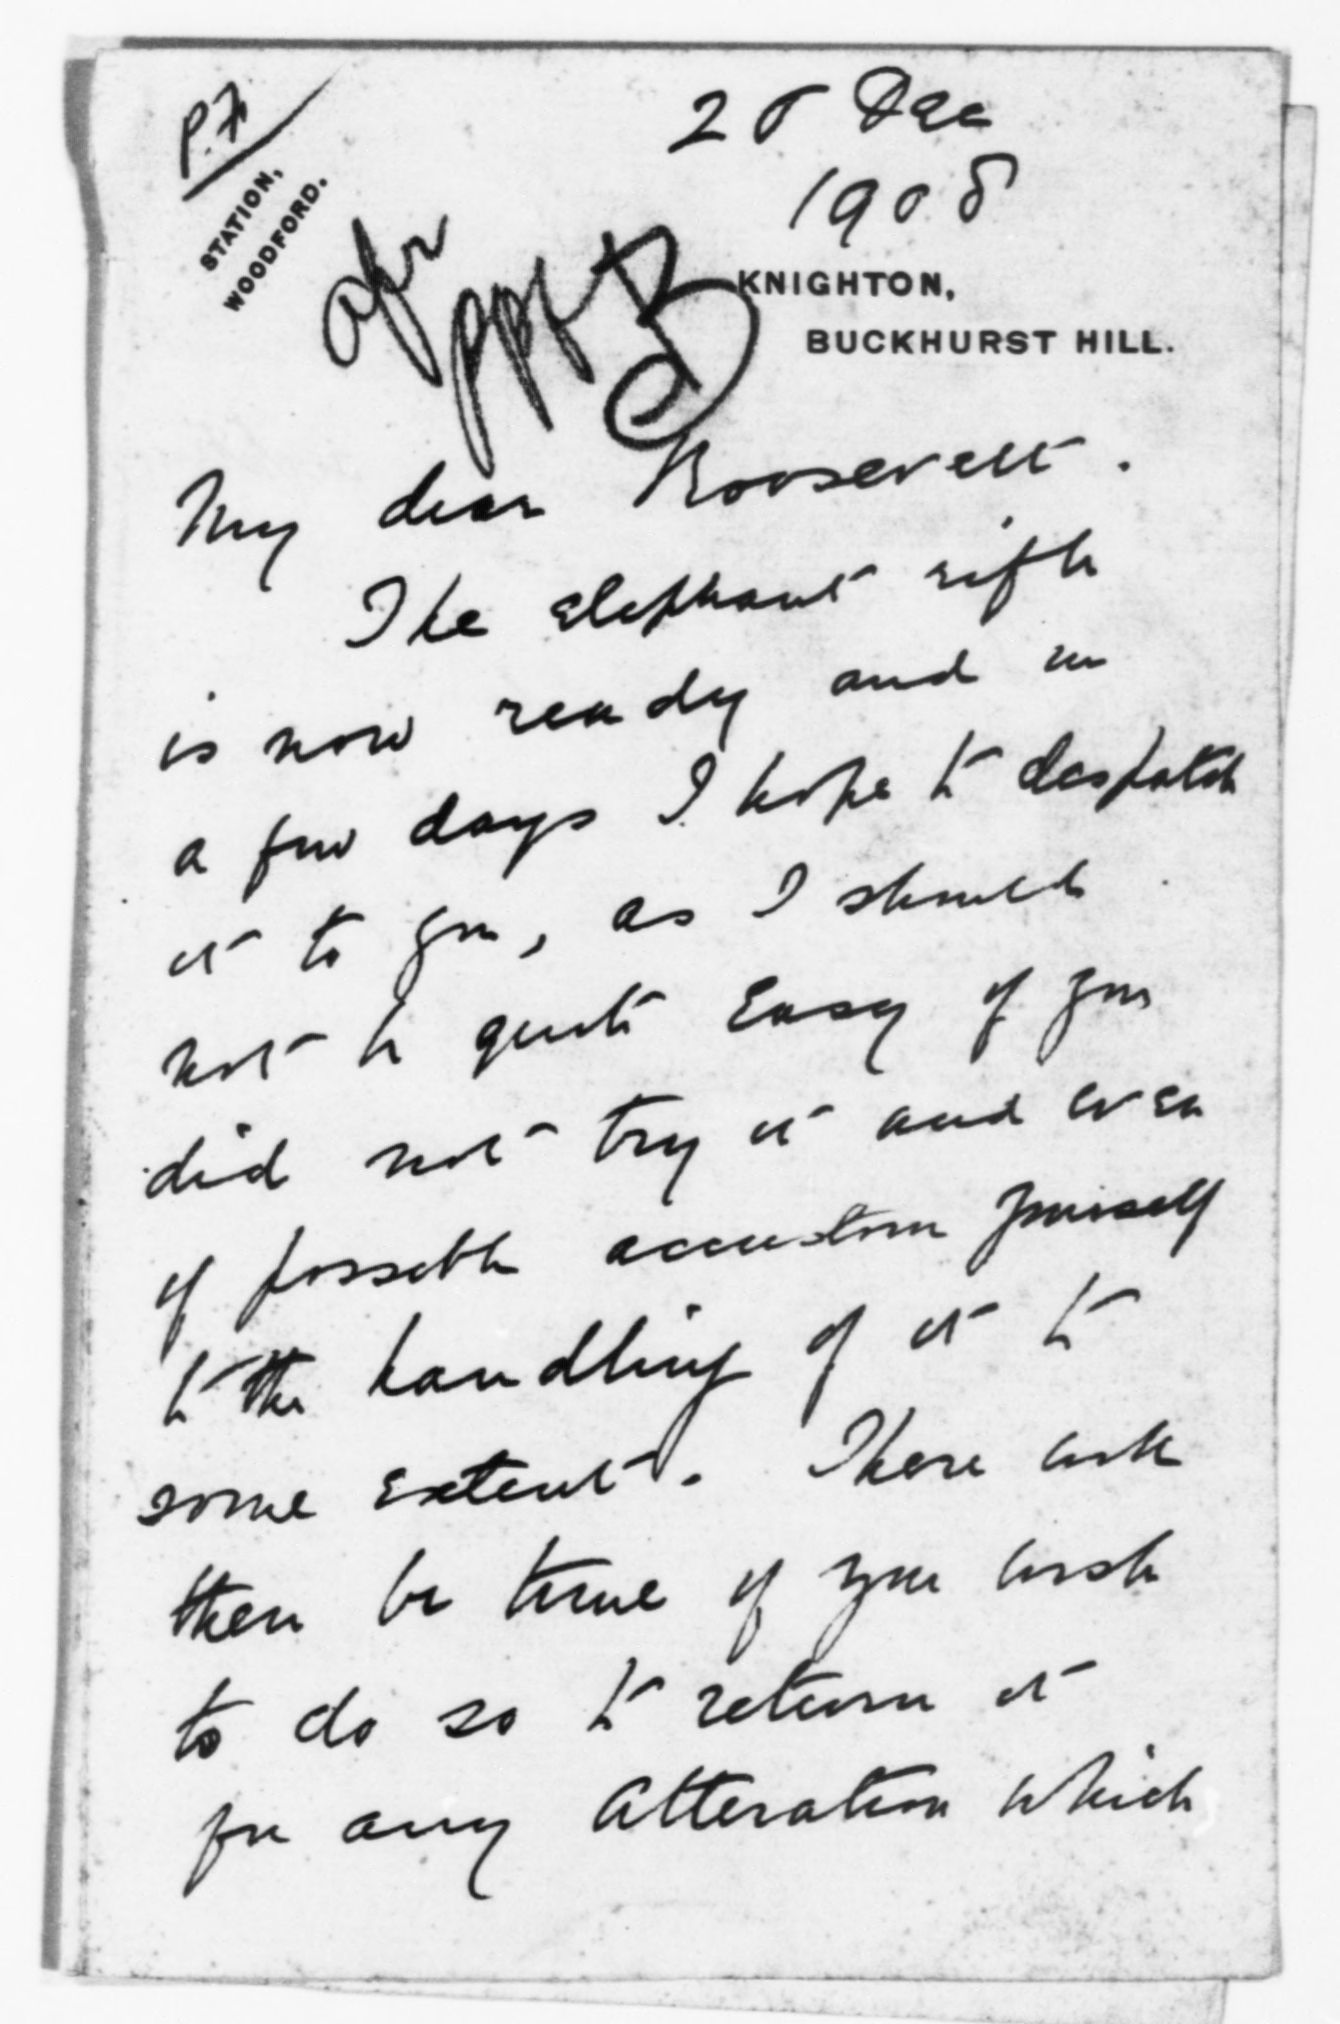 P.F
STATION,
WOODFORD.
28 Dec
1908
KNIGHTON,
BUCKHURST HILL.
PPF
B
My dear Roosevelt.
The elephant rifle
is now ready and in
a few days I hope to despatch
it to you, as I should
not be quite easy if you
did not try it and even
if possible accustom yourself
to the handling of it to
some extent. There will
then be time if you wish
to do so to return it
for any alteration which